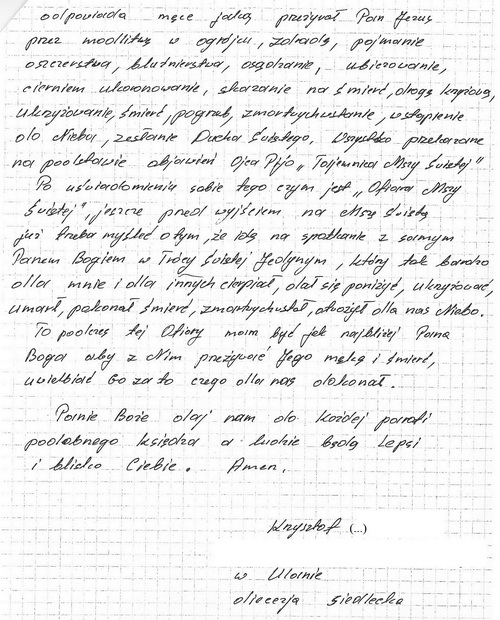 odpowiada męce jaką przeżywał Pan Jezus
przez modlitwę w ogrójcu, zdradę, pojmanie
oszczerstwa, bluźnierstwa, osądzanie, ubiczowanie,
cierniem ukoronowanie, skazanie na śmierć, drogę krzyżową,
ukrzyżowanie, śmierć, pogrzeb, zmartwychwstanie, wstąpienie
do Nieba, zesłanie Ducha Świętego. Wszystko przekazane
na podstawie objawień Ojca Pijo „Tajemnica Mszy Świętej"
Po uświadomieniu sobie tego czym jest „Ofiara Mszy
Świętej", jeszcze przed wyjściem na Mszę Świętą
już trzeba myśleć o tym, że idę na spotkanie z samym
Panem Bogiem w Trójcy Świętej Jedynym, który tak bardzo
dla mnie i dla innych cierpiał, dał się poniżyć, ukrzyżować,
umarł, pokonał śmierć, zmartwychwstał, otworzył dla nas Niebo.
To podczas tej Ofiary mam być jak najbliżej Pana
Boga aby z Nim przeżywać Jego mękę i śmierć,
uwielbiać Go za to czego dla nas dokonał.
Panie Boże daj nam do każdej parafi
podobnego księdza a ludzie będą lepsi
i blisko Ciebie. Amen.
Krzysztof (...)
w
diecezja siedlecka